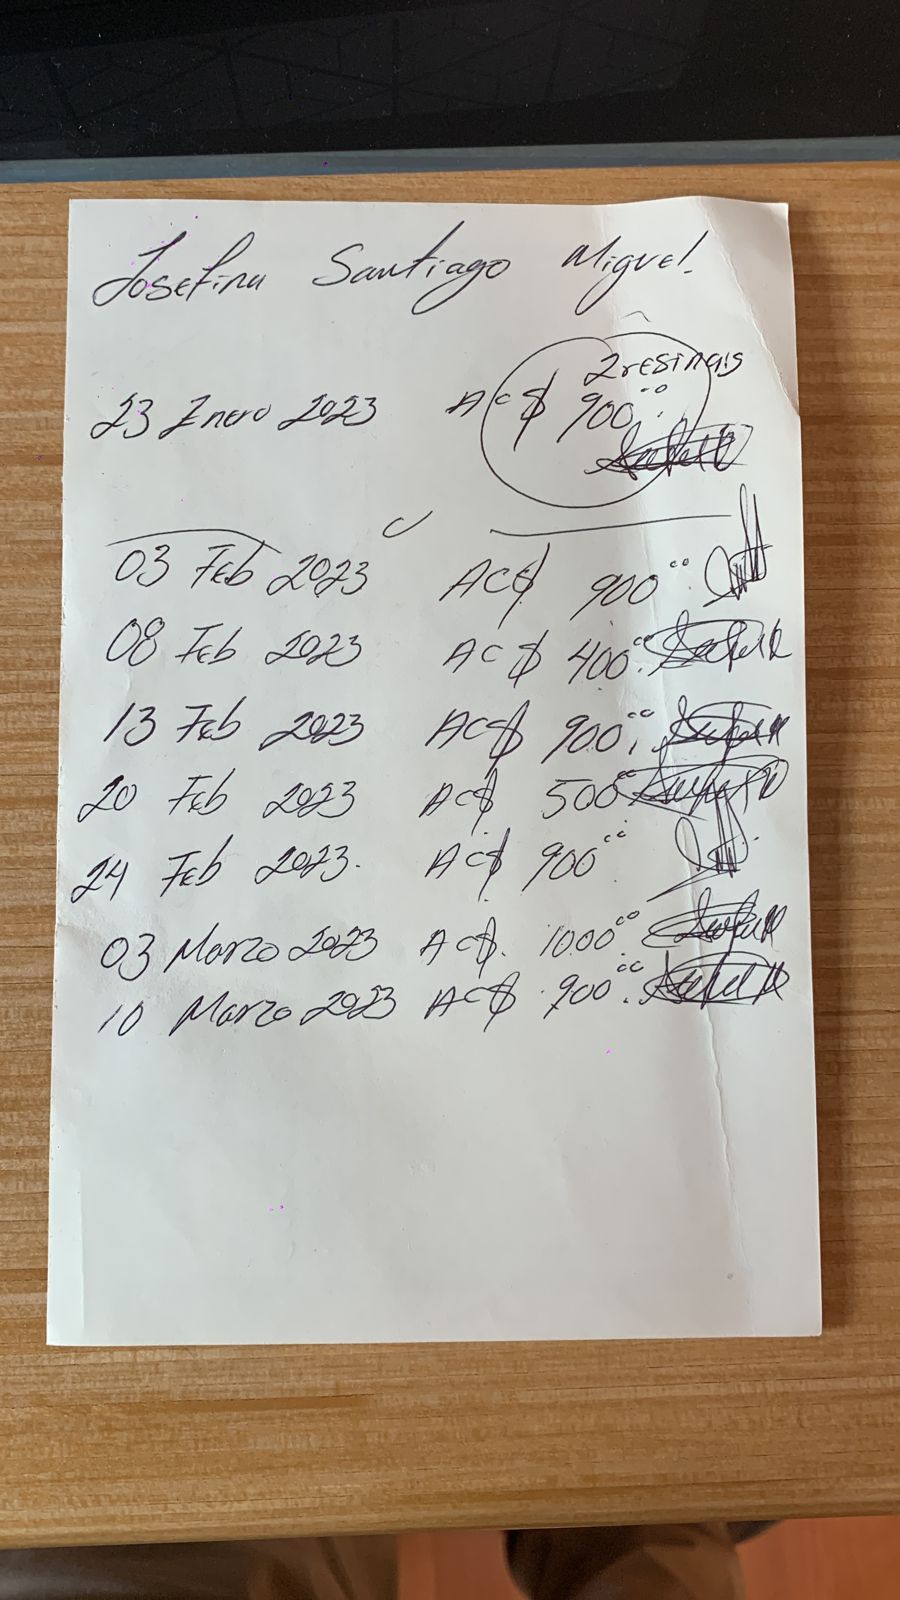 Josefina Santiago Miguel.
2 resinais
23 Enero 2023 AC$ 900.00
03 Feb 2023 AC$ 900.00
08 Feb 2023 AC$ 400.00
13 Feb 2023 AC$ 900.00
20 Feb 2023 AC$ 500.00
24 Feb 2023. AC$ 900.00
03 Marzo 2023 AC$. 1000.00
10 Marzo 2023 AC$ 900.00